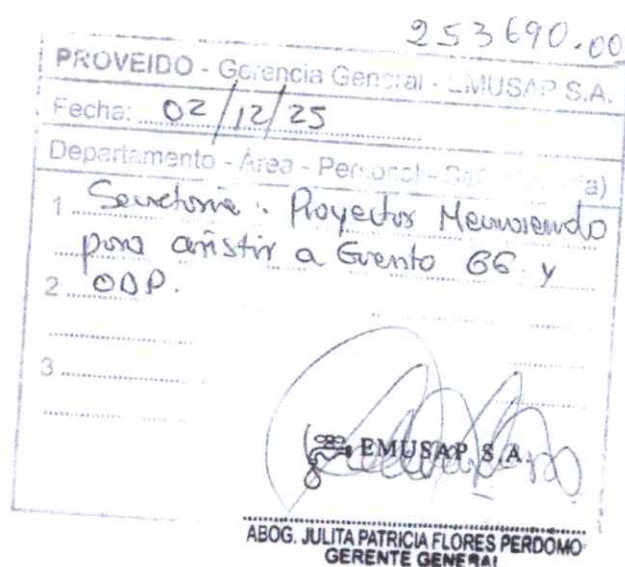 253690.00
PROVEIDO - Gerencia General - EMUSAP S.A.
Fecha: 02/12/25
Departamento - Área - Personal -
1 Secretaria: Proyectar Memorando
para asistir a Evento GG y
2 ODP.
3
EMUSAP S.A.
ABOG. JULITA PATRICIA FLORES PERDOMO
GERENTE GENERAL